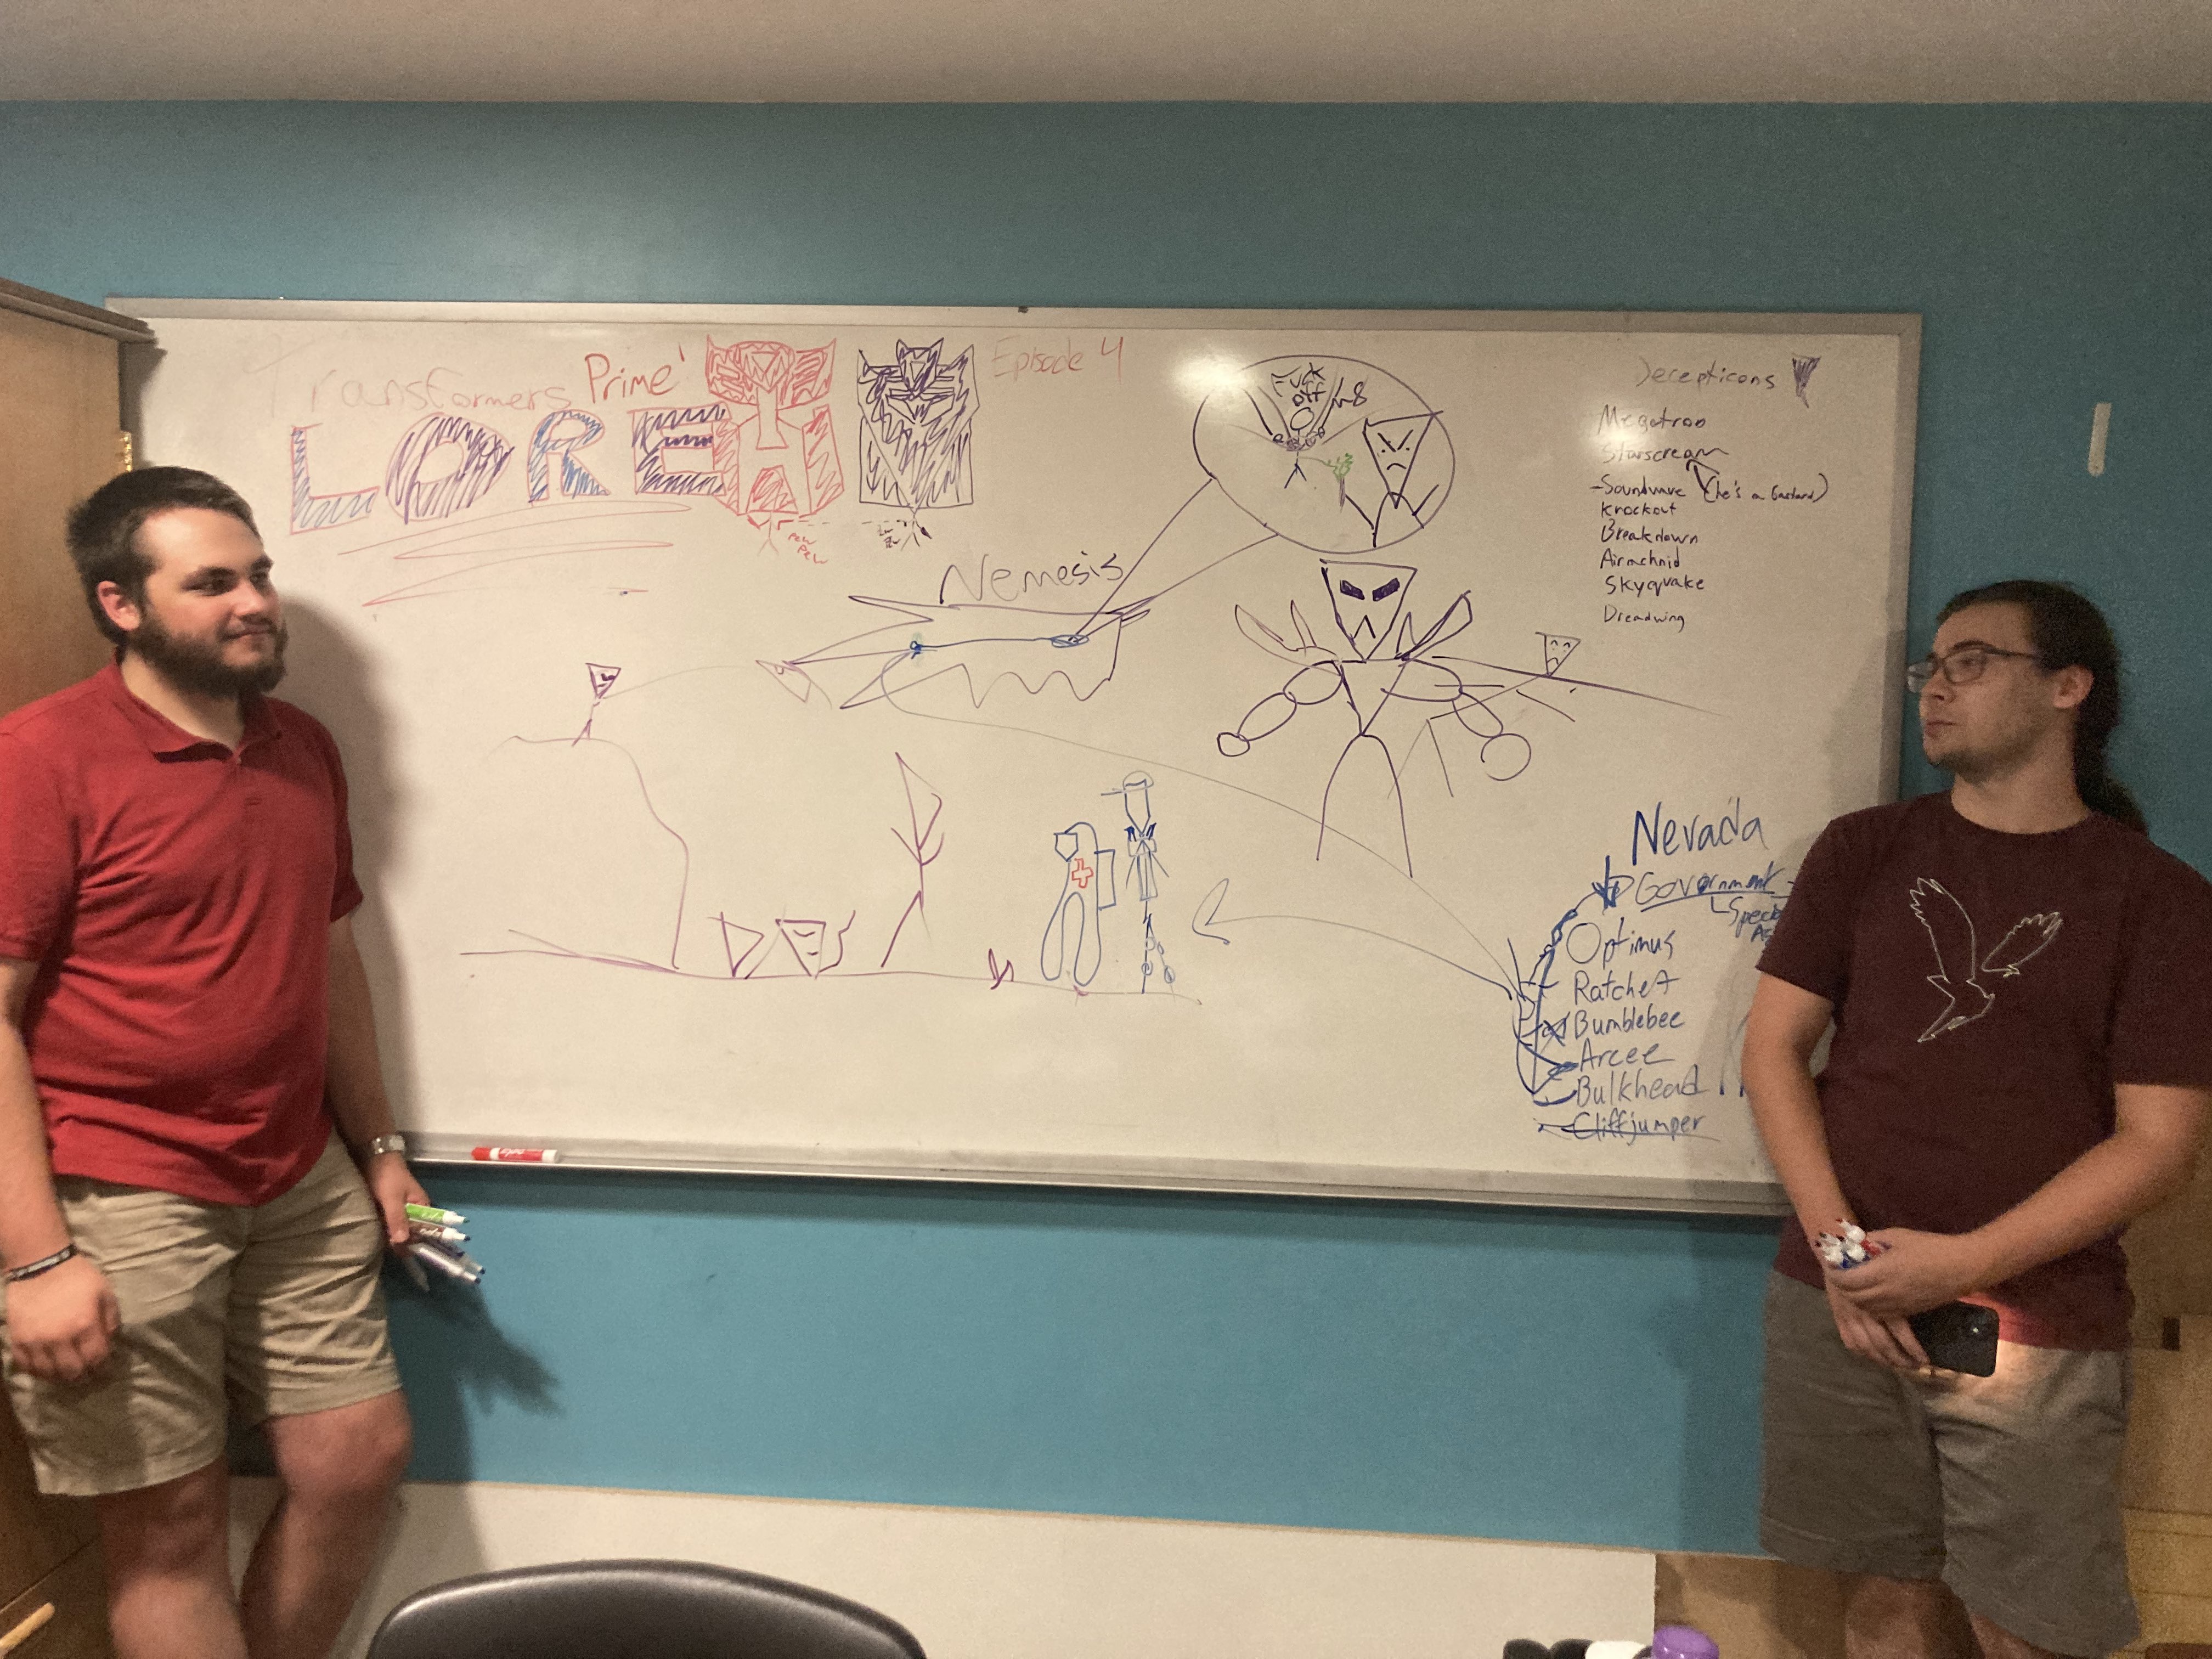 Transformers Prime
LORE
Episode 4
pew
pew
Fuck
off
m8
Nemesis
Decepticons
Megatron
Starscream
-Soundwave (he's a bastard)
Knockout
Breakdown
Airachnid
Skyquake
Dreadwing
Nevada
Government
Optimus
Ratchet
Bumblebee
Arcee
Bulkhead
Cliffjumper